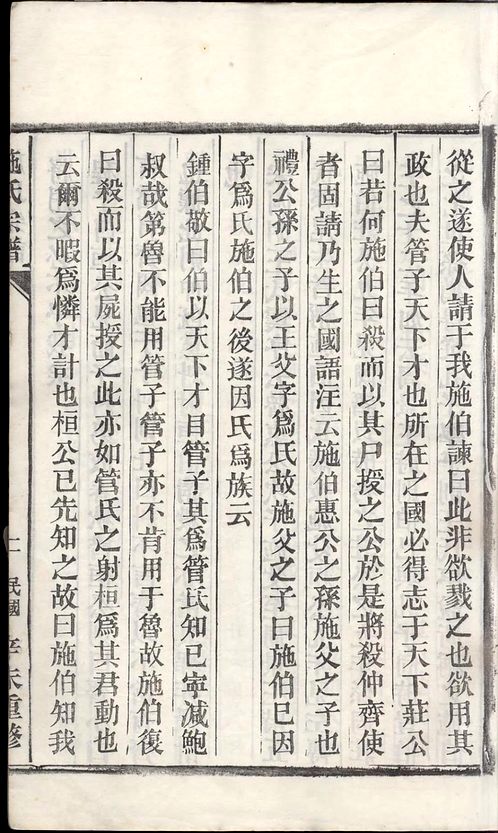 從之遂使人請于我施伯諫曰此非欲戮之也欲用其
政也夫管子天下才也所在之國必得志于天下莊公
曰若何施伯曰殺而以其尸授之公於是將殺仲齊使
者固請乃生之國語注云施伯惠公之孫施父之子也
禮公孫之子以王父字爲氏故施父之子曰施伯巳因
字爲氏施伯之後遂因氏爲族云
鍾伯敬曰伯以天下才目管子其爲管氏知已寧减鮑
叔哉第魯不能用管子管子亦不肯用于魯故施伯復
曰殺而以其屍授之此亦如管氏之射桓爲其君動也
云爾不暇爲憐才計也桓公已先知之故曰施伯知我
施氏宗譜
民國
辛未重修